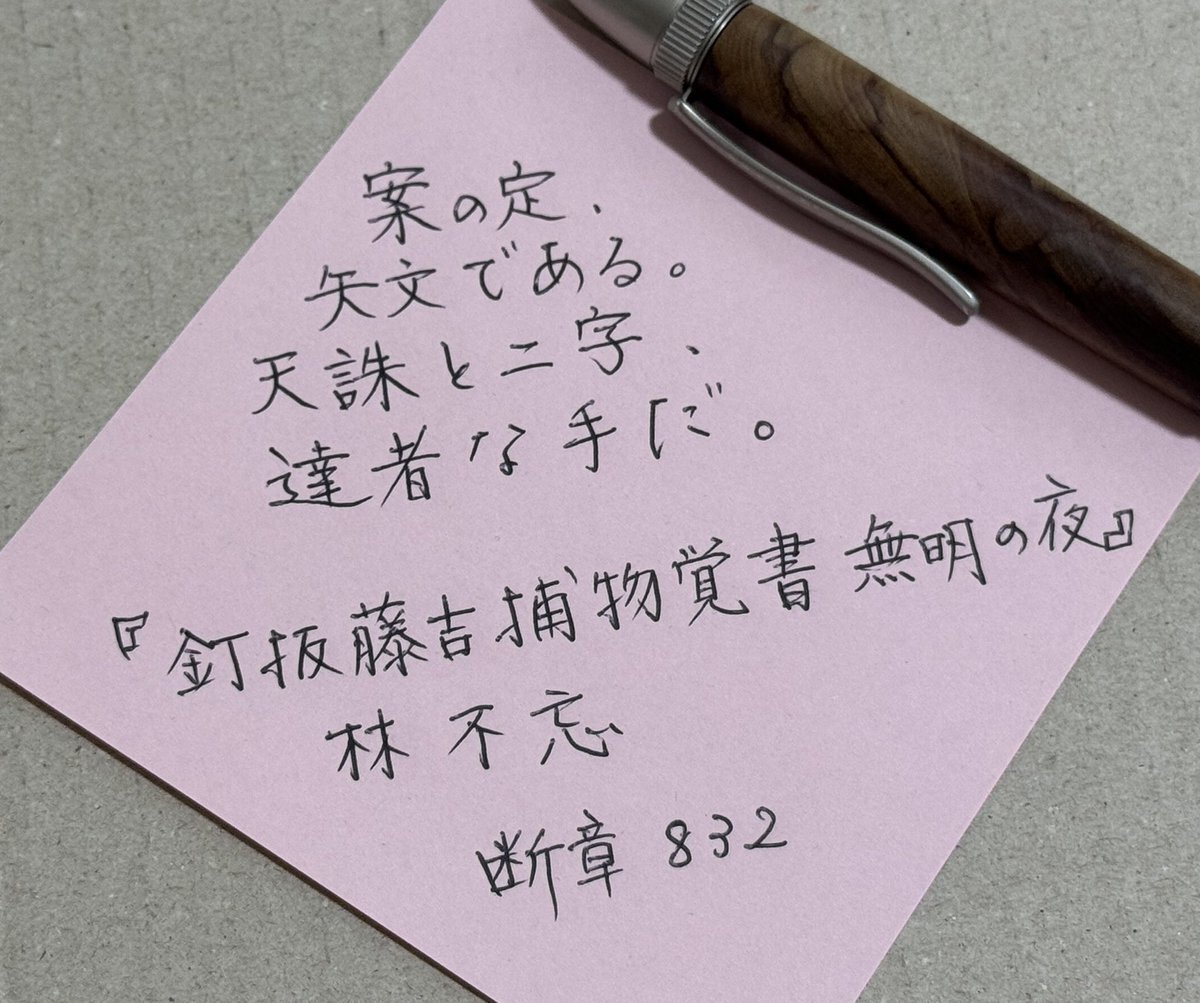 案の定、
矢文である。
天誅と二字、
達者な手だ。
『釘抜藤吉捕物覚書 無明の夜』
林不忘
断章 832